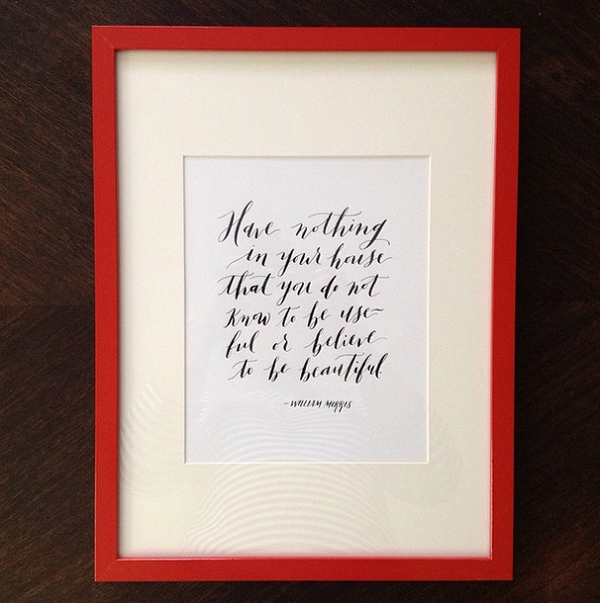 Have nothing
in your house
that you do not
know to be use~
ful or believe
to be beautiful.
—WILLIAM MORRIS